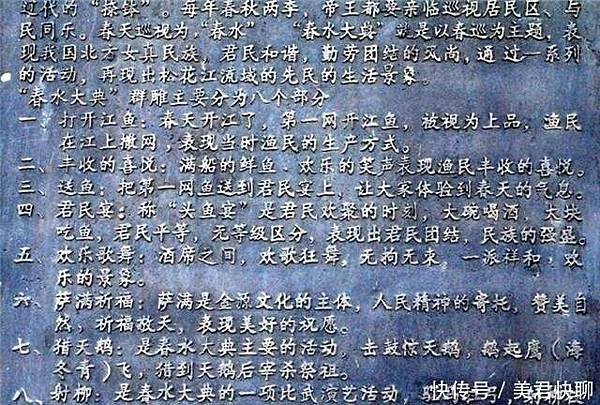 辽代的“捺钵”。每年春秋两季，帝王都要亲临巡视居民区、与
民同乐。春天巡视为“春水” “春水大典”就是以春巡为主题，表
现我国北方女真民族，君民和谐，勤劳团结的风尚，通过一系列
的活动，再现出松花江流域的先民的生活景象。
“春水大典”群雕主要分为八个部分
一、打开江鱼：春天开江了，第一网开江鱼，被视为上品，渔民
在江上撒网，表现当时渔民的生产方式。
二、丰收的喜悦：满船的鲜鱼、欢乐的笑声表现渔民丰收的喜悦。
三、送鱼：把第一网鱼送到君民宴上，让大家体验到春天的气息。
四、君民宴：称“头鱼宴”是君民欢聚的时刻，大碗喝酒，大块
吃鱼，君民平等，无等级区分，表现出君民团结，民族的强盛。
五、欢乐歌舞：酒席之间，欢歌狂舞，无拘无束，一派祥和，欢
乐的景象。
六、萨满祈福：萨满是金源文化的主体，人民精神的寄托，赞美自
然，祈福敬天，表现美好的祝愿。
七、猎天鹅：是春水大典主要的活动，击鼓惊天鹅，鹅起鹰（海
冬青）飞，猎到天鹅后宰杀祭祖。
八、射柳：是春水大典的一项比武演艺活动，
快传号/美君快聊